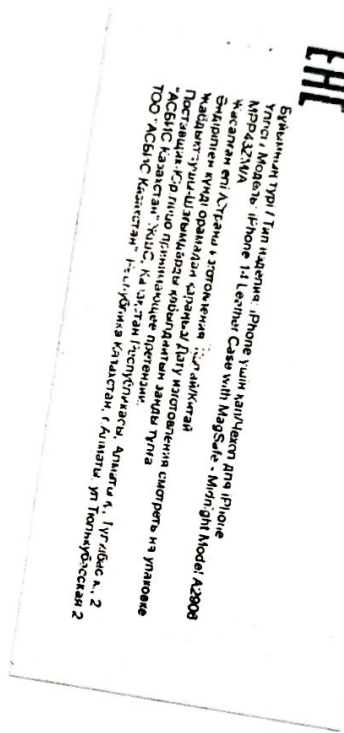 EAC
Бұйымның түрі / Тип изделия: iPhone үшін қап/Чехол для iPhone
Үлгісі / Модель: iPhone 14 Leather Case with MagSafe - Midnight Model A2906
Жасалған елі /Страна изготовления Китай
Өндірілген күнді орамадан қараңыз/ Дату изготовления смотреть на упаковке
Жабдықтаушы-Шағымдарды қабылдайтын заңды тұлға
Поставщик-Юр лицо принимающее претензии:
"АСБИС Казахстан" ЖШС, Қазақстан Республикасы, Алматы қ., 2
ТОО "АСБИС Казахстан" Республика Казахстан, г.Алматы. ул Тюлькубасская 2